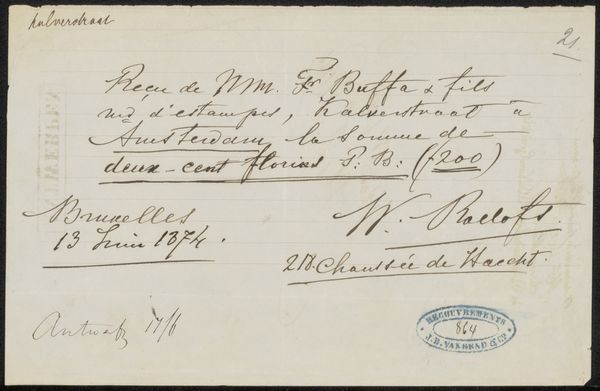 Kalverstraat
21
Reçu de MM. Fr Buffa & fils
md d'estampes, Kalverstraat à
Amsterdam la somme de
deux-cent florins P: B: (f 200)
Bruxelles
13 Juin 1874.
W. Roelofs.
218. Chaussée de Haecht.
17/6
RECOUVREMENTS
864